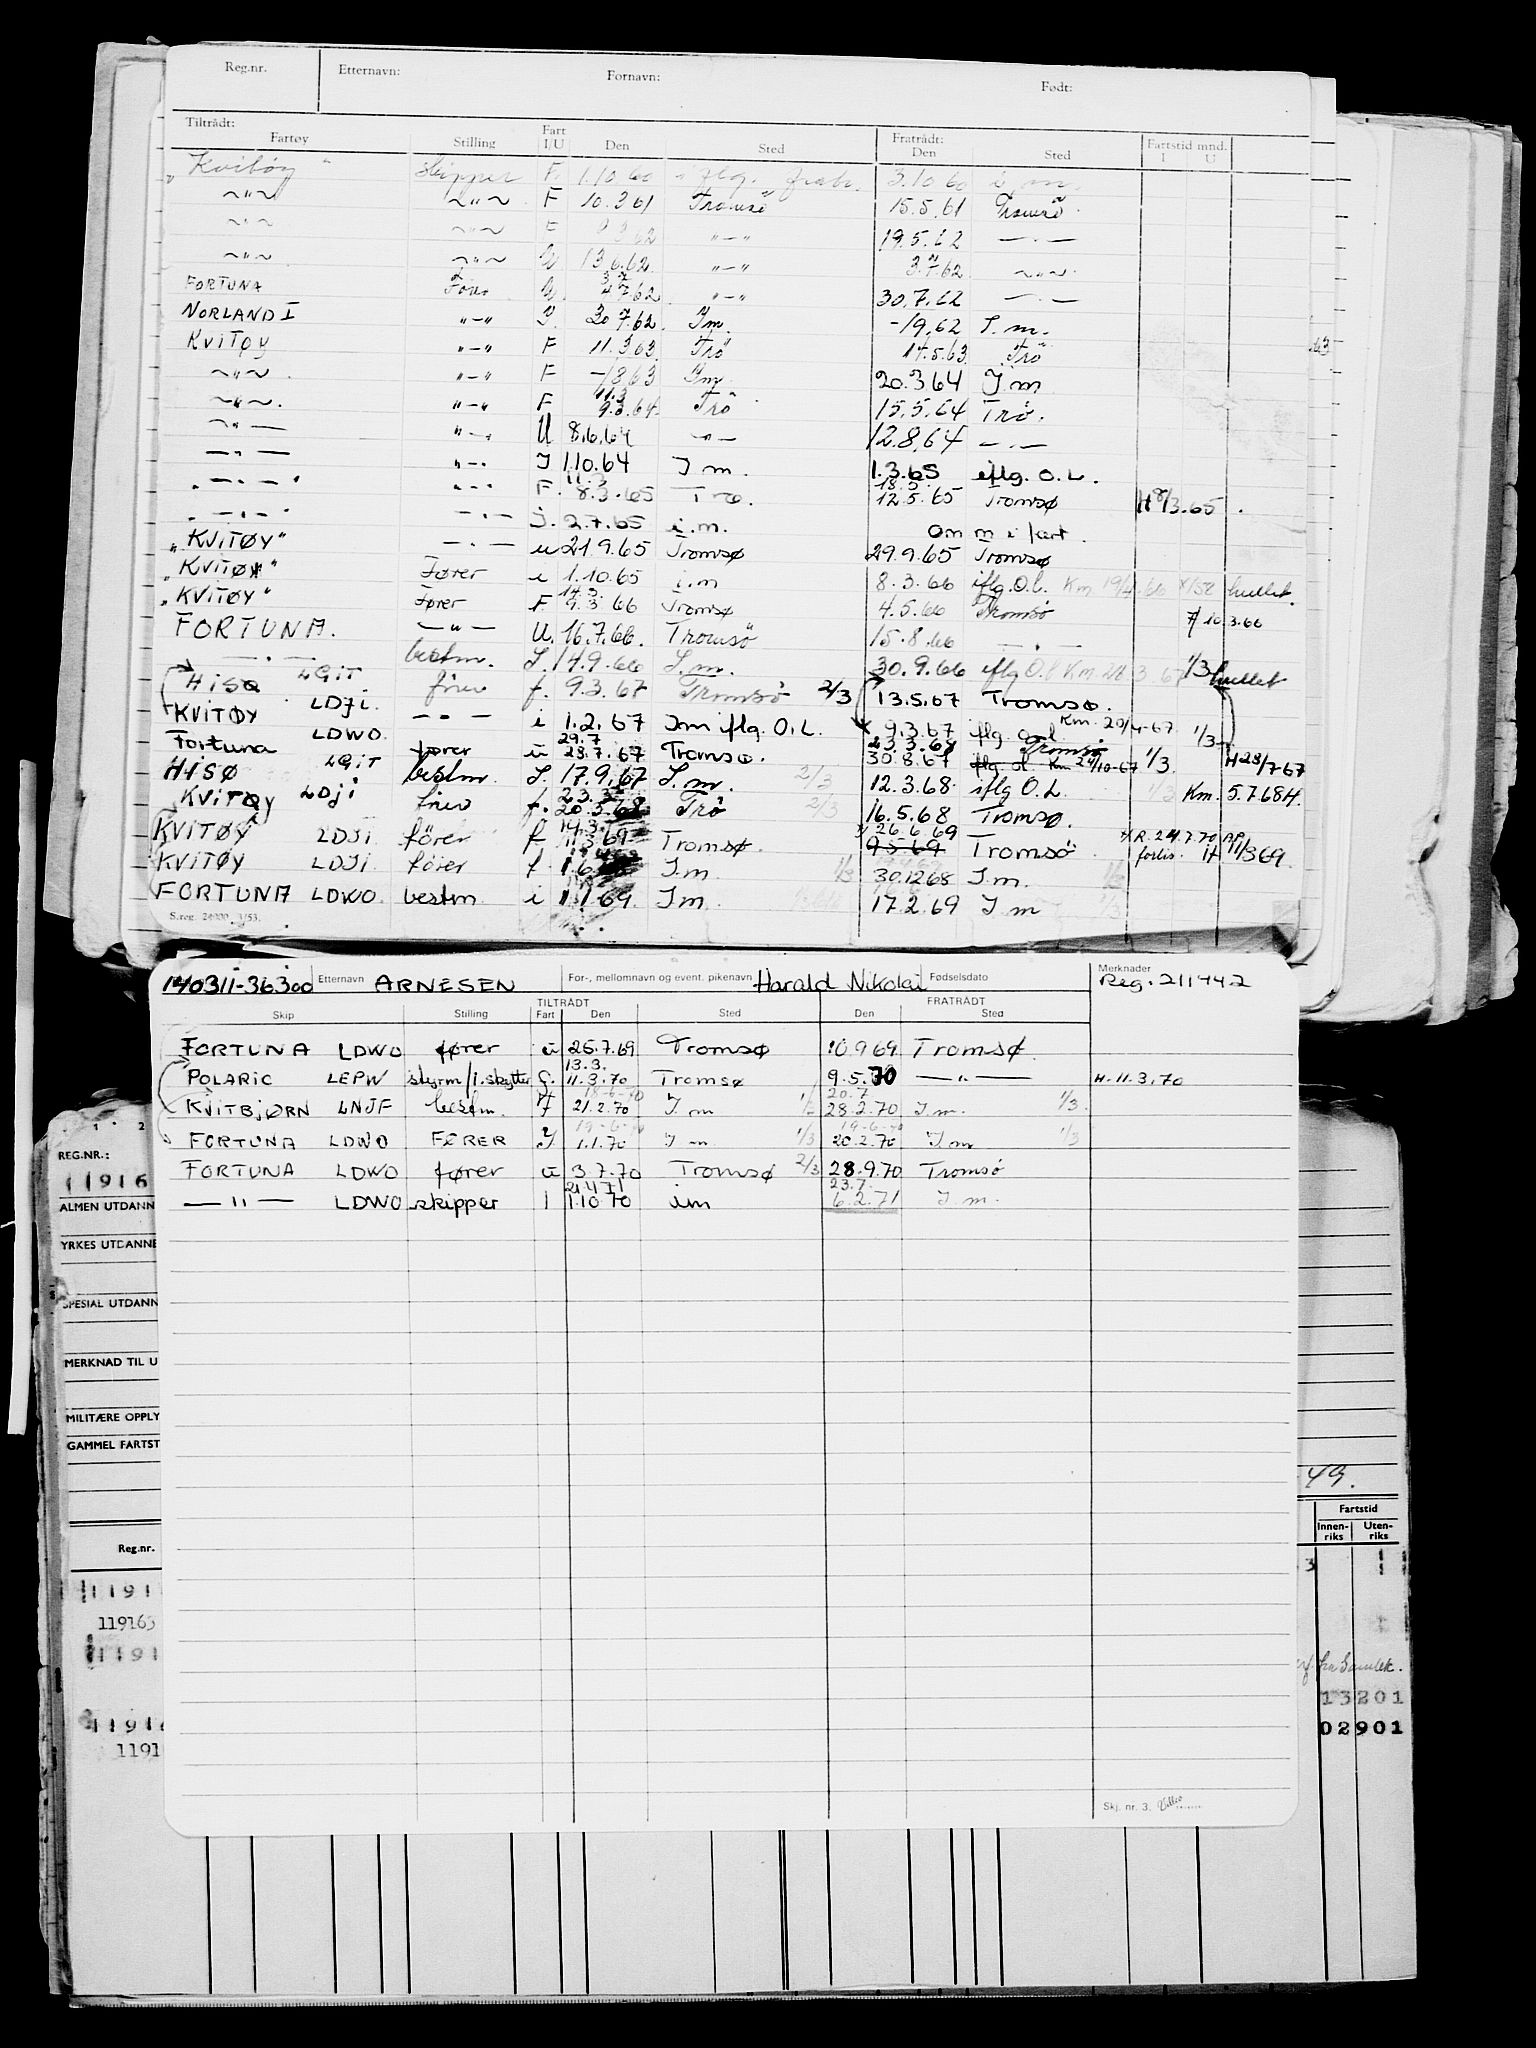 Reg.nr. Etternavn: Fornavn: Født:
Tiltrådt: Fratrådt:
Fartøy Stilling Fart I/U Den Sted Den Sted Fartstid mnd. I U
"Kvitøy" skipper F. 1.10.60 iflg. fratr. 3.10.60 i.m.
~"~ ~"~ F 10.3.61 Tromsö 15.5.61 Tromsö.
~"~ ~"~ 3.62 "-" 19.5.62 —.—
~"~ ~"~ U. 13.6.62 "-" 3.7.62 ~"~
FORTUNA Förer U. 4.7.62 "-" 30.7.62 —.—
NORLAND I "-" I. 30.7.62. Im. -/9.62 I.m.
KVITØY "-" F 11.3.63. Trö 14.5.63 Trö
~"~. "-" F -/8.63 Im. 20.3.64 I.m
~"~. "-" F 11.3 9.3.64. Trö 15.5.64 Trö.
~"— "-" U 8.6.64 -"- 12.8.64 —.—
—"— "-" I 1.10.64 I m. 1.3.65 iflg. O.L.
"—.—" "-" F. 11.3 8.3.65 Trø. 18.5. 12.5.65 Tromsø H 8/3.65.
"—.—" —.— i. 2.7.65 i.m. om m i fart.
"KVITØY" —.— u 21.9.65 Tromsø 29.9.65 Tromsø
"KVITØY" fører i 1.10.65 i.m 8.3.66 iflg. O.L. Km 19/4.66 hullet.
"KVITØY" fører F 14.3. 9.3.66 Tromsø 4.5.66 Tromsö H 10.3.66
FORTUNA. —"— U. 16.7.66. Tromsö 15.8.66 —.—
—.— bestm. I. 14.9.66 I.m. 30.9.66 iflg O.L Km 28.3.67 1/3 hullet
HISØ LGIT förer f. 9.3.67 Tromsö 2/3 13.5.67 Tromsø.
KVITØY LDJI. —"— i 1.2.67 Im iflg. O.L. 9.3.67 iflg. o.l. Km. 20/4-67. 1/3
Fortuna LDWO. fører u 29.7 28.7.67 Tromsø. 23.3.67 30.8.67 Tromsø iflg. ol. Km 24/10-67 1/3 H 28/7-67
HISØ LGIT bestm. I. 17.9.67 I.m. 2/3 12.3.68 iflg O.L. 1/3 Km. 5.7.68 H.
KVITØY LDJI förer f. 23.3. 20.3.68 Trö 2/3 16.5.68 Tromsø.
KVITØY LDJI. förer f 14.3. 11.3.69 Tromsø. 26.6.69 9.5.69 Tromsö H R. 24.7.70 AP fortis. H 11/3 69.
KVITØY LDJI. föier f I.m. 1/3 30.12.68 I.m. 1/2
FORTUNA LDWO. bestm i 1.1.69. I.m. 17.2.69 I.m 1/3
S.reg. 24000. 3/53.
140311-36300 Etternavn ARNESEN For-, mellomnavn og event. pikenavn Harald Nikolai Fødselsdato Merknader Reg. 211942
TILTRÅDT FRATRÅDT
Skip Stilling Fart Den Sted Den Sted
FORTUNA LDWO fører u 25.7.69 Tromsø 10.9.69 Tromsø.
POLARIC LEPW styrm/1.skytter f. 13.3. 11.3.70 Tromsø 9.5.70 —"— H. 11.3.70
KVITBJØRN LNJF bestm. f 18-6-70 21.2.70 I.m 1/2 20.7 28.2.70 I.m. 1/3
FORTUNA LDWO FØRER I 19-6-70 1.1.70 I m 1/3 19-6-70 20.2.70 I.m 1/3
FORTUNA LDWO fører u 3.7.70 Tromsø 2/3 28.9.70 Tromsö
—"— LDWO skipper I 21.4.71 1.10.70 i.m 23.7. 6.2.71 I.m.
REG.NR.:
11916
ALMEN UTDANN
YRKES UTDANNE
SPESIAL UTDANN
MERKNAD TIL U
MILITÆRE OPPLY
GAMMEL FARTST
49.
Fartstid
Reg.nr. Innen-riks Uten-riks
1191
119165
1191
fra Samlek.
13201
1191 02901
1191
Skj. nr. 3.